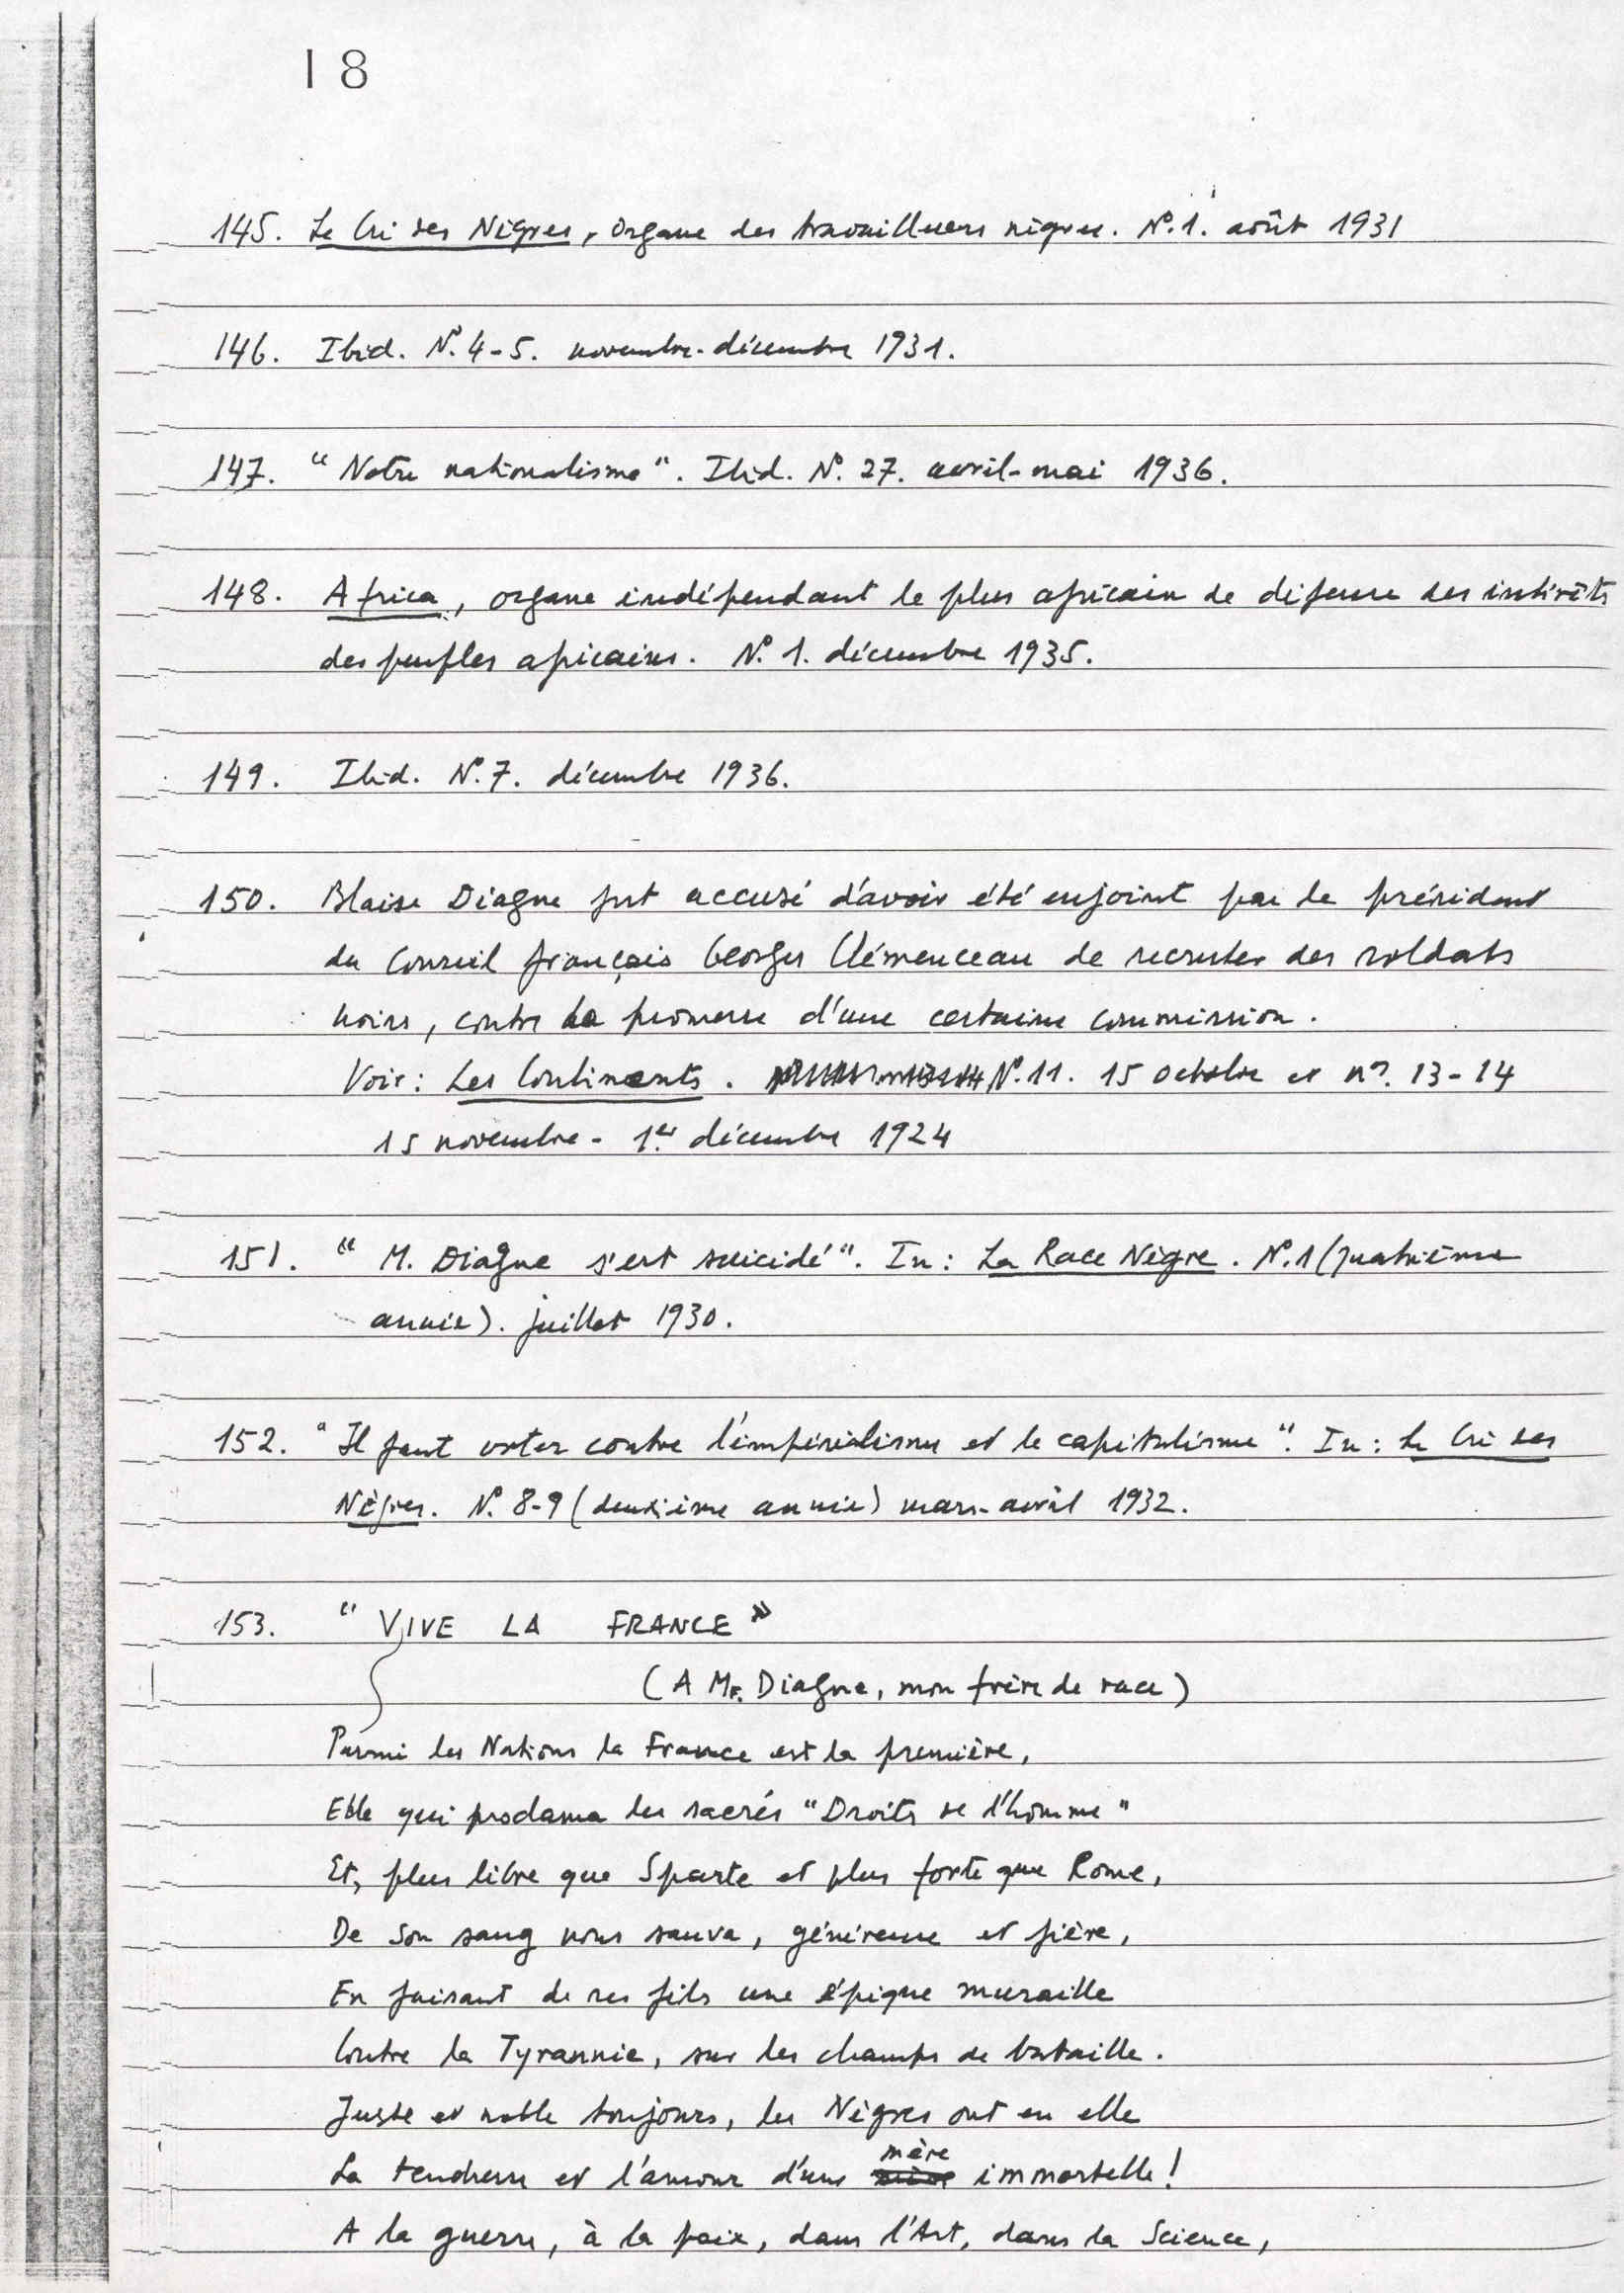 18
145. Le Cri des Nègres, Organe des travailleurs nègres. N° 1. août 1931
146. Ibid. N° 4-5. novembre-décembre 1931.
147. "Notre nationalisme". Ibid. N° 27. avril-mai 1936.
148. Africa, organe indépendant le plus africain de défense des intérêts
des peuples africains. N° 1. décembre 1935.
149. Ibid. N° 7. décembre 1936.
150. Blaise Diagne fut accusé d'avoir été enjoint par le président
du Conseil français Georges Clémenceau de recruter des soldats
noirs, contre la promesse d'une certaine commission.
Voir: Les Continents. N° 11. 15 octobre et n° 13-14
15 novembre - 1er décembre 1924
151. "M. Diagne s'est suicidé". In: La Race Nègre. N° 1 (quatrième
année). juillet 1930.
152. "Il faut voter contre l'impérialisme et le capitalisme". In: Le Cri des
Nègres. N° 8-9 (deuxième année) mars-avril 1932.
153. "VIVE LA FRANCE"
(A Mr. Diagne, mon frère de race)
Parmi les Nations la France est la première,
Elle qui proclama les sacrés "Droits de l'homme"
Et, plus libre que Sparte et plus forte que Rome,
De son sang nous sauva, généreuse et fière,
En faisant de ses fils une épique muraille
Contre la Tyrannie, sur les champs de bataille.
Juste et noble toujours, les Nègres ont en elle
La tendresse et l'amour d'une mère immortelle!
A la guerre, à la paix, dans l'Art, dans la Science,